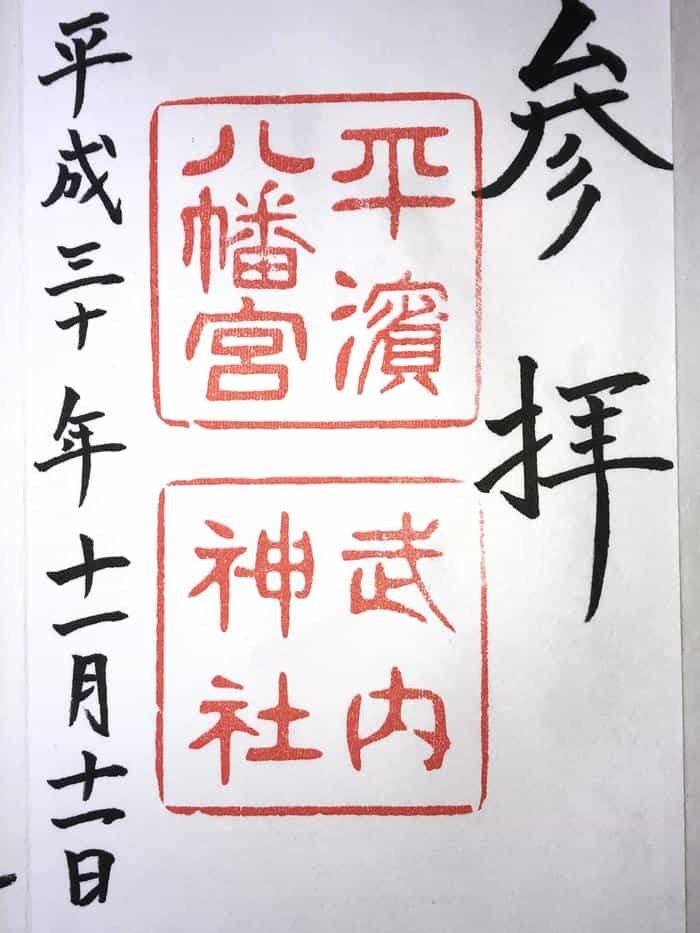 参拝
平濱
八幡宮
武内
神社
平成三十年十一月十一日